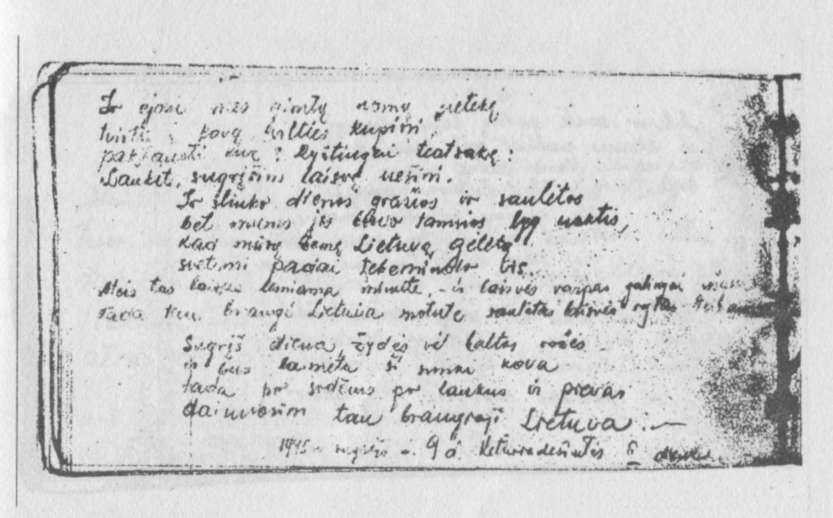 Ir ėjom mes gimtų namų netekę
tvirti, kovą vilties kupini
paklausti kur? Ryžtingai teatsakę:
Laukit, sugrįšim laisvę nešini.
Ir slinko dienos gražios ir saulėtos
bet mums jos buvo tamsios lyg naktis,
kad mūsų žemę Lietuvą gėlėtą
svetimi padai tebemindo vis.
Ateis tas laikas laukiama minutė, - ir laisvės varpas galingai
tada tau brangi Lietuva motute saulėtas laisvės rytas
Sugrįš diena, žydės vėl baltos rožės -
ir bus laimėta ši sunki kova
tada po sodžius po laukus ir pievas
dainuosim tau brangioji Lietuva. -
1945 9 d. Keturiadešimtis